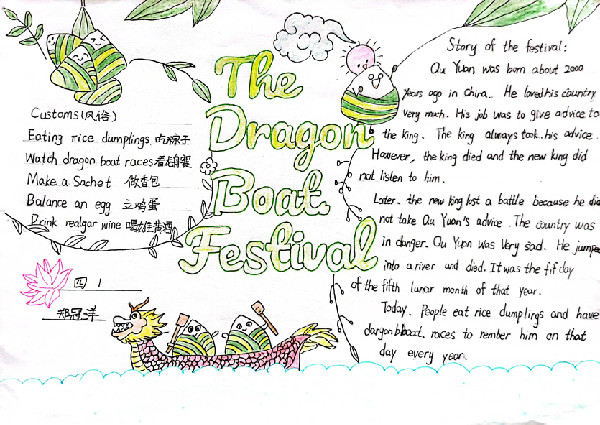 The
Dragon
Boat
Festival
Customs(风俗)
Eating rice dumplings. 吃粽子
Watch dragon boat races 看赛龙舟
Make a Sachet 做香包
Balance an egg 立鸡蛋
Drink realgar wine 喝雄黄酒
四 1
Story of the festival:
Qu Yuan was born about 2000
years ago in China. He loved his country
very much. His job was to give advice to
the king. The king always took his advice.
However, the king died and the new king did
not listen to him.
Later, the new king lost a battle because he did
not take Qu Yuan's advice. The country was
in danger. Qu Yuan was very sad. He jumped
into a river and died. It was the fif day
of the fifth lunar month of that year.
Today. people eat rice dumplings and have
dargon bboat races to rember him on that
day every year.